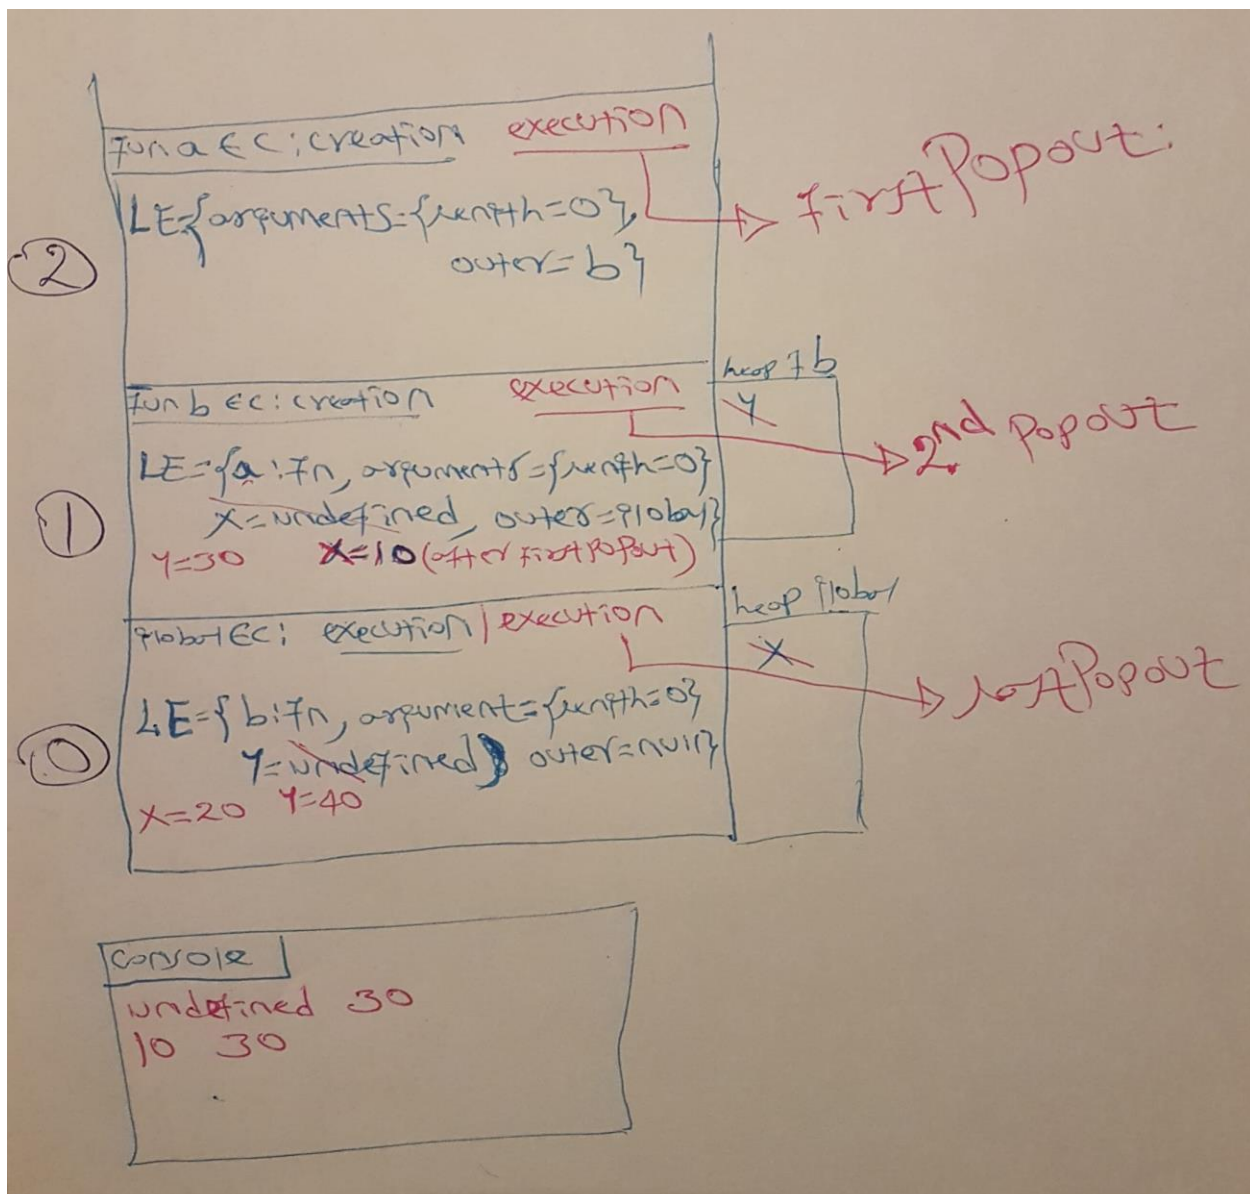 fun a EC: creation execution
first Popout:
LE={arguments={length=0},
outer=b}
2
heap f b
fun b EC: creation execution
Y
2nd popout
LE={a:fn, arguments={length=0}
X=undefined, outer=global}
1
Y=30 X=10 (after first Popout)
heap global
global EC: execution | execution
X
last Popout
LE={b:fn, argument={length=0}
Y=undefined} outer=null}
0
X=20 Y=40
console
undefined 30
10 30